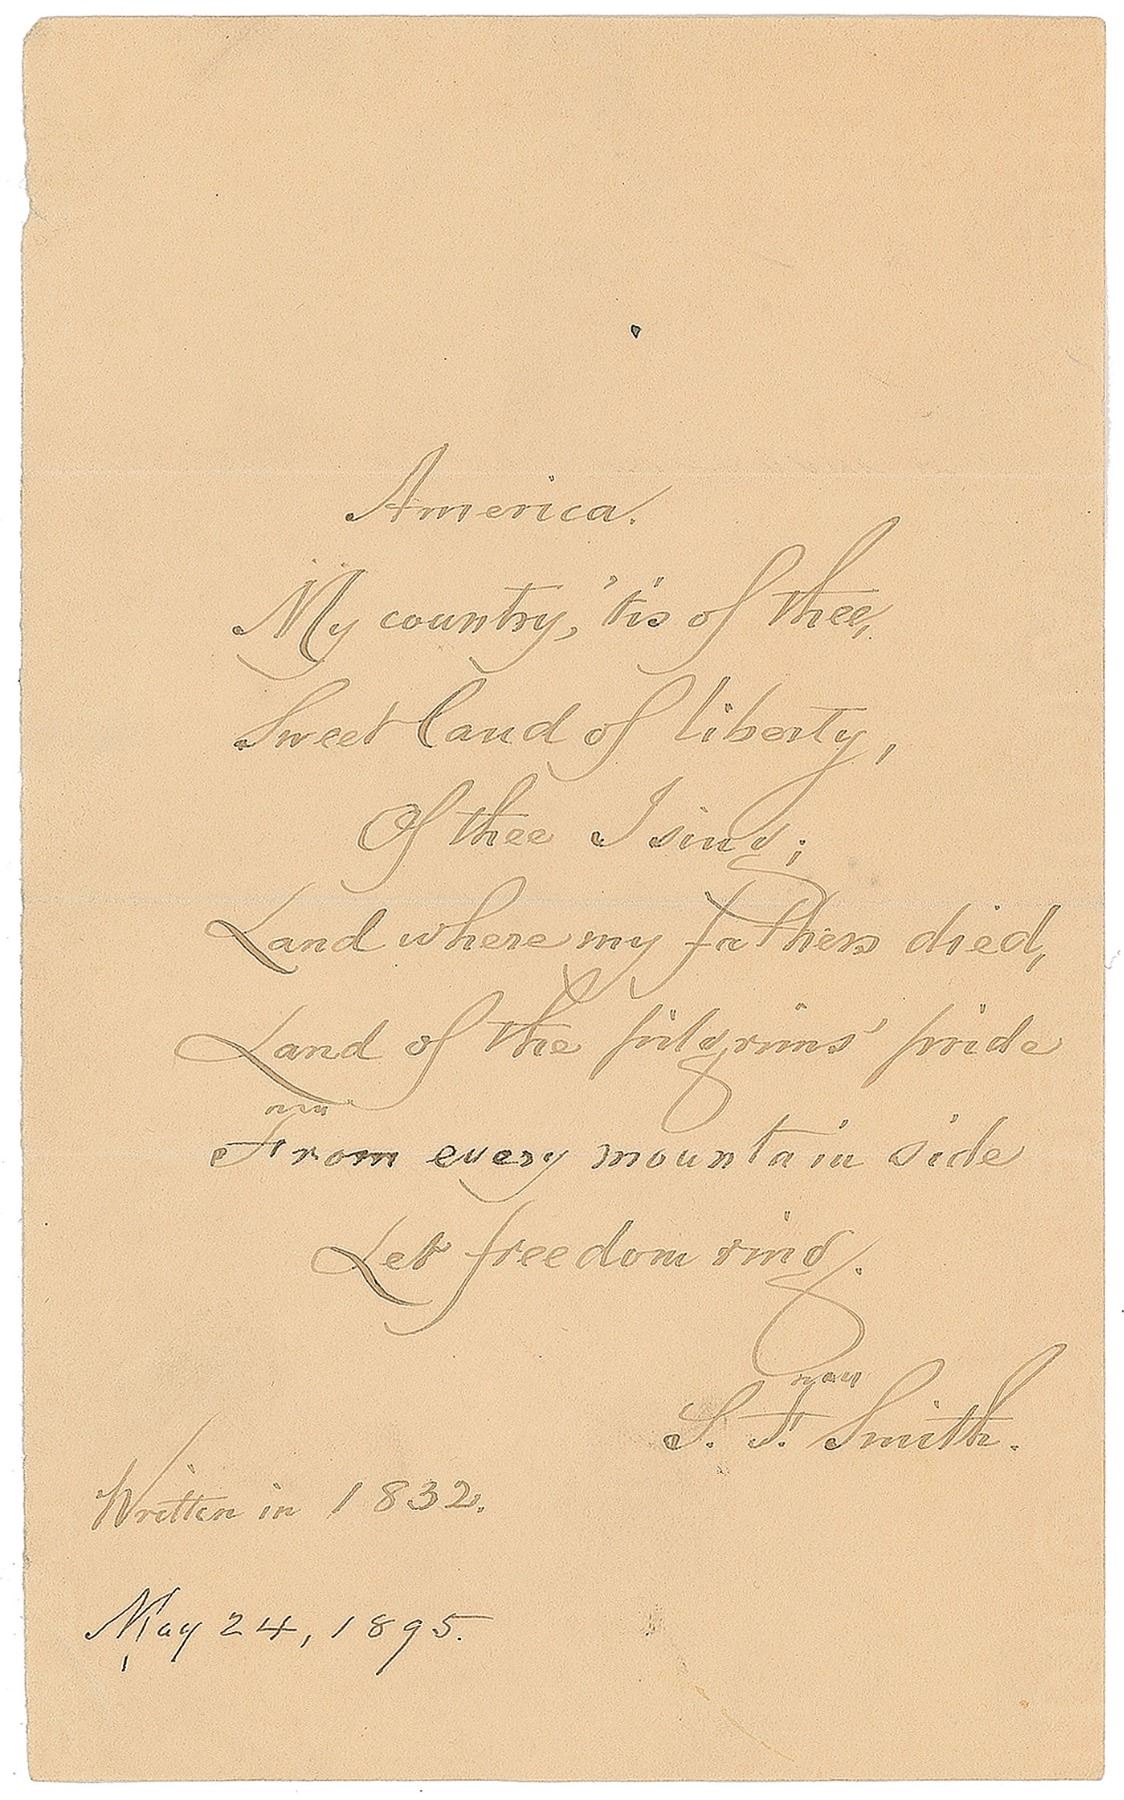 America.
My country, 'tis of thee,
Sweet land of liberty,
Of thee I sing;
Land where my fathers died,
Land of the pilgrims' pride
From every mountain side
Let freedom ring.
S. F. Smith.
Written in 1832.
May 24, 1895.